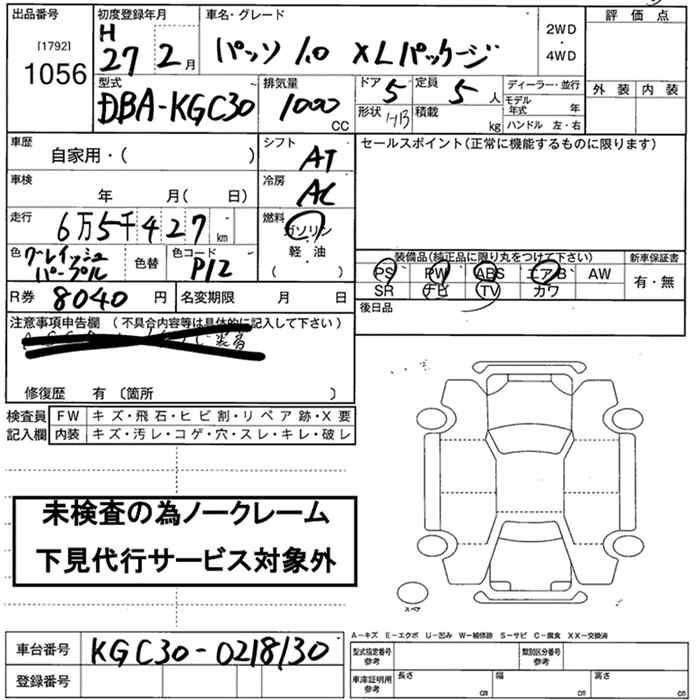 出品番号
[1792]
1056
初度登録年月
H
27 2 月
車名・グレード
パッソ 1.0 XLパッケージ
2WD
・
4WD
評価点
外装 内装
型式
DBA-KGC30
排気量
1000
CC
ドア 5
形状 H/B
定員 5 人
積載 kg
ディーラー・並行
モデル年式 年
ハンドル 左・右
車歴
自家用・( )
シフト
AT
セールスポイント(正常に機能するものに限ります)
車検
年 月( 日)
冷房
AC
走行
6万5千427 km
燃料
ガソリン
軽・油
( )
色
グレイッシュ
パープル
色替
色コード
P12
装備品(純正品に限り丸をつけて下さい)
PS PW ABS エアB AW
SR ナビ TV カワ
新車保証書
有・無
R券 8040 円
名変期限 月 日
後日品
注意事項申告欄 (不具合内容等は具体的に記入して下さい)
修復歴 有 〔箇所 〕
検査員
記入欄
FW キズ・飛石・ヒビ割・リペア跡・X要
内装 キズ・汚レ・コゲ・穴・スレ・キレ・破レ
未検査の為ノークレーム
下見代行サービス対象外
スペア
A-キズ E-エクボ U-凹み W-補修跡 S-サビ C-腐食 XX-交換済
車台番号 KGC30-0218130
登録番号
型式指定番号
参考
類別区分番号
参考
車庫証明用
参考
長さ cm
幅 cm
高さ cm